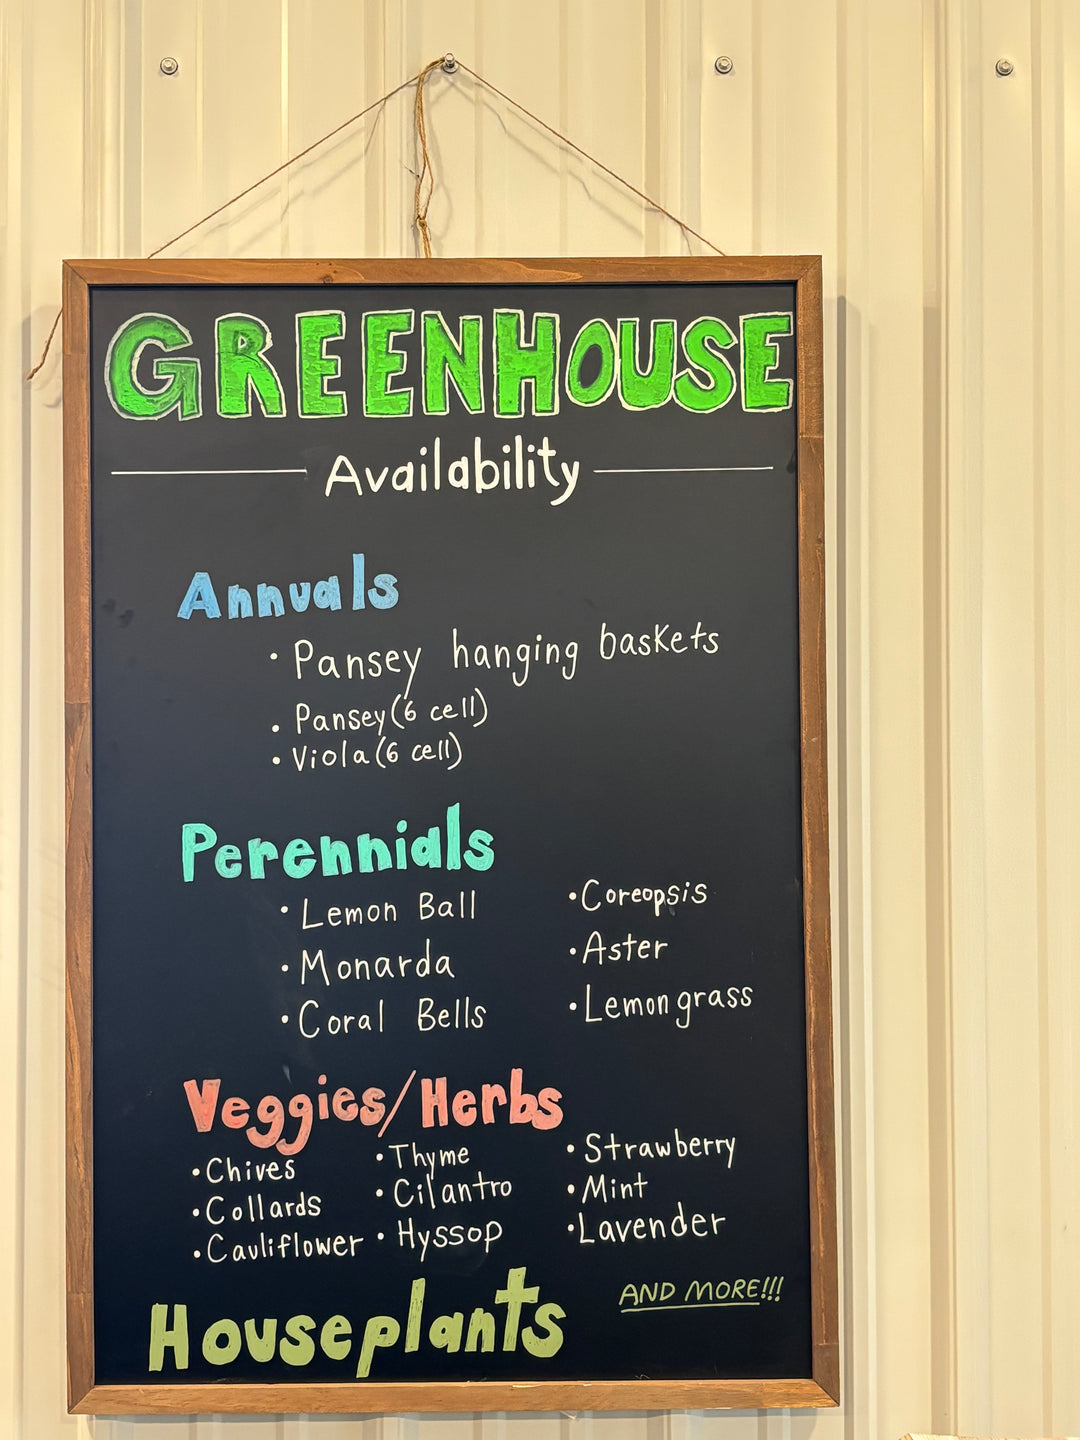 GREENHOUSE
Availability
Annuals
• Pansey hanging baskets
• Pansey (6 cell)
• Viola (6 cell)
Perennials
• Lemon Ball
• Monarda
• Coral Bells
• Coreopsis
• Aster
• Lemongrass
Veggies/Herbs
• Chives
• Collards
• Cauliflower
• Thyme
• Cilantro
• Hyssop
• Strawberry
• Mint
• Lavender
Houseplants
AND MORE!!!